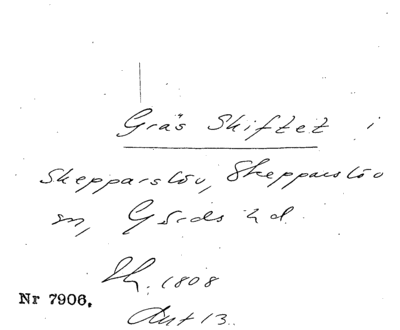 Gräs Skiftet i
Skepparslöv, Skepparslöv
sn, Gärds hd.
Sk. 1808
Nr 7906.
Akt 13.